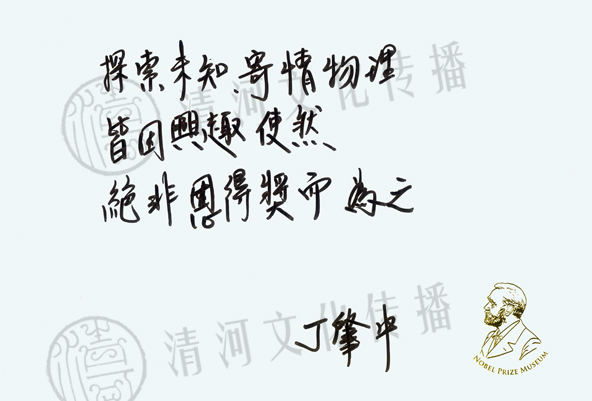 探索未知,寄情物理
清河文化传播
皆因興趣使然
絕非思得獎而為之
清河文化传播
丁肇中
NOBEL PRIZE MUSEUM